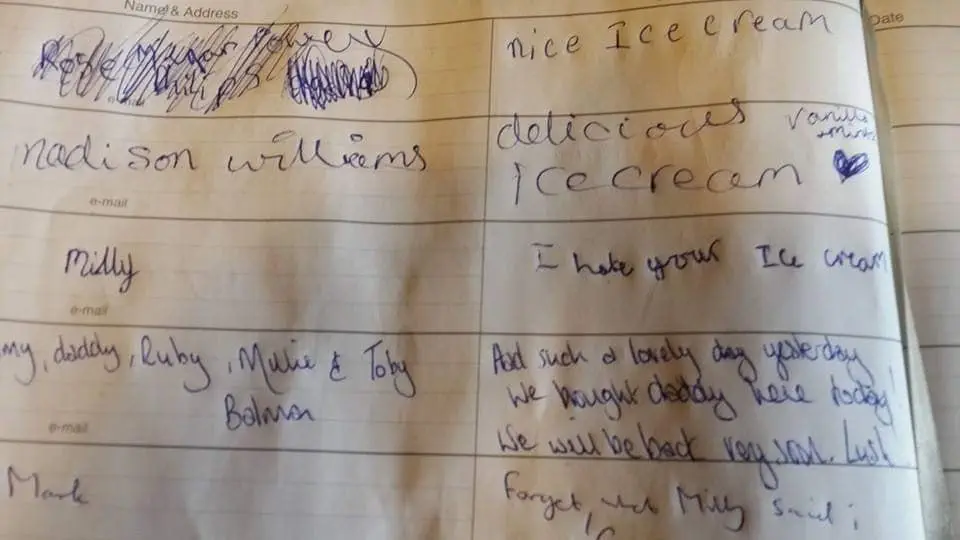 Name & Address
Date
nice Ice cream
e-mail
madison williams
delicious
vanilla
ice cream
e-mail
Milly
I hate your Ice cream
e-mail
my, daddy, Ruby, Millie & Toby
Had such a lovely day yesterday
We bought daddy here today!
We will be back very soon. Lush
e-mail
Mark
Forget what Milly said;